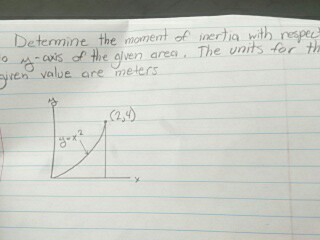 Determine the moment of inertia with respect
to y-axis of the given area. The units for the
given value are meters
y
(2,4)
y=x²
x